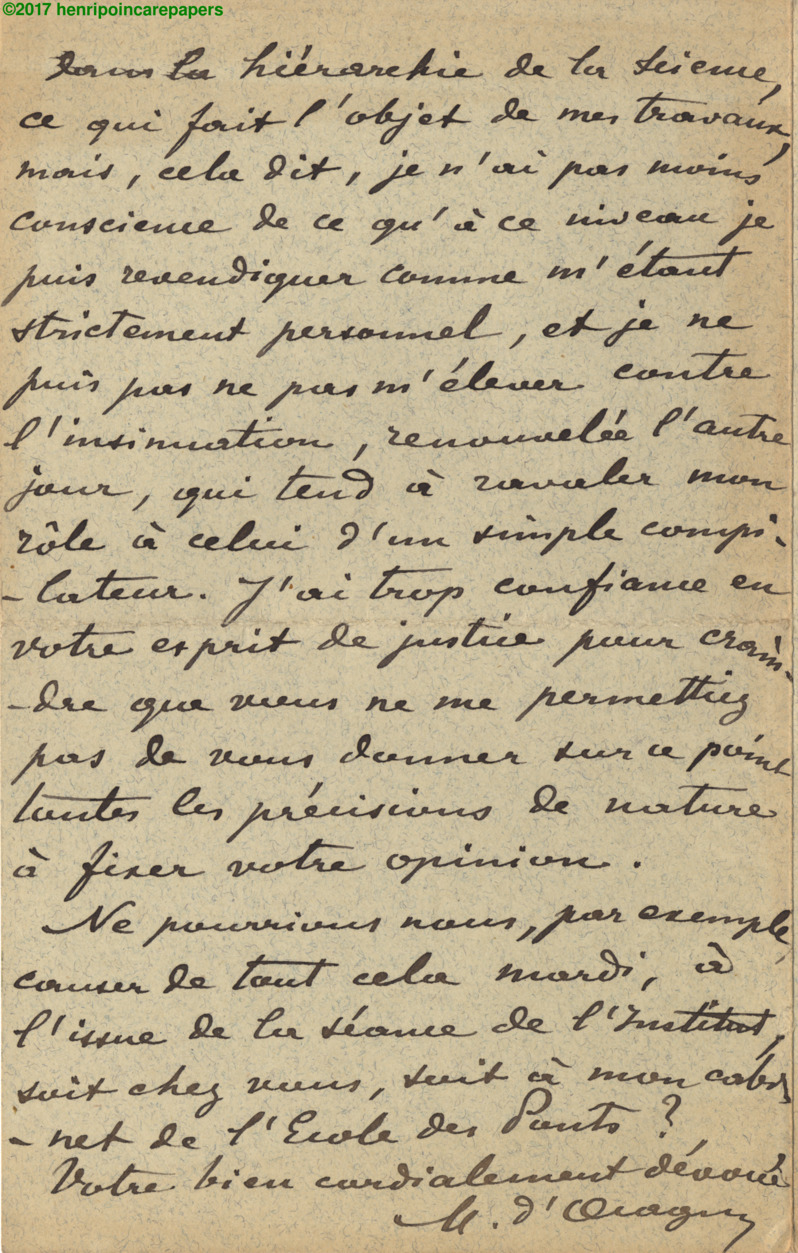 ©2017 henripoincarepapers
dans la hiérarchie de la science,
ce qui fait l'objet de mes travaux,
mais, cela dit, je n'ai pas moins
conscience de ce qu'à ce niveau je
puis revendiquer comme m'étant
strictement personnel, et je ne
puis pas ne pas m'élever contre
l'insinuation, renouvelée l'autre
jour, qui tend à ravaler mon
rôle à celui d'un simple compi-
-lateur. J'ai trop confiance en
votre esprit de justice pour crain-
-dre que vous ne me permettiez
pas de vous donner sur ce point
toutes les précisions de nature
à fixer votre opinion.
Ne pourrions nous, par exemple,
causer de tout cela mardi, à
l'issue de la séance de l'Institut,
soit chez vous, soit à mon cabi-
-net de l'Ecole des Ponts ?
Votre bien cordialement dévoué
M. d'Ocagne